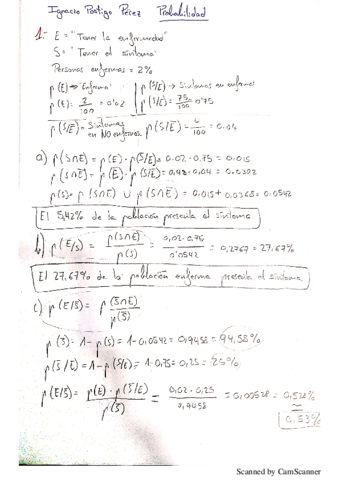 Ignacio Postigo Pérez Probabilidad
1.- E = "Tener la enfermedad"
S = "Tener el síntoma"
Personas enfermas = 2%
p(E) → "Enferma" p(S/E) → Síntomas en enfermo
p(E): 2/100 = 0'02 p(S/E) = 75/100 = 0'75
p(S/E̅) = Síntomas en NO enfermos p(S/E̅) = 4/100 = 0.04
a) p(S∩E) = p(E) · p(S/E) = 0.02 · 0.75 = 0.015
p(S∩E̅) = p(E̅) · p(S/E̅) = 0.98 · 0.04 = 0.0392
p(S) = p(S∩E) ∪ p(S∩E̅) = 0.015 + 0.0392 = 0.0542
El 5,42% de la población presenta el síntoma
b) p(E/S) = p(S∩E)/p(S) = 0,02·0,75/0'0542 = 0,2767 = 27,67%
El 27,67% de la población enferma presenta el síntoma.
c) p(E/S̅) = p(S̅∩E)/p(S̅)
p(S̅) = 1 - p(S) = 1 - 0,0542 = 0,9458 = 94,58%
p(S̅/E) = 1 - p(S/E) = 1 - 0,75 = 0,25 = 25%
p(E/S̅) = p(E) · p(S̅/E)/p(S̅) = 0,02 · 0,25/0,9458 = 0,00528 = 0,528%
≃
0.53%
Scanned by CamScanner